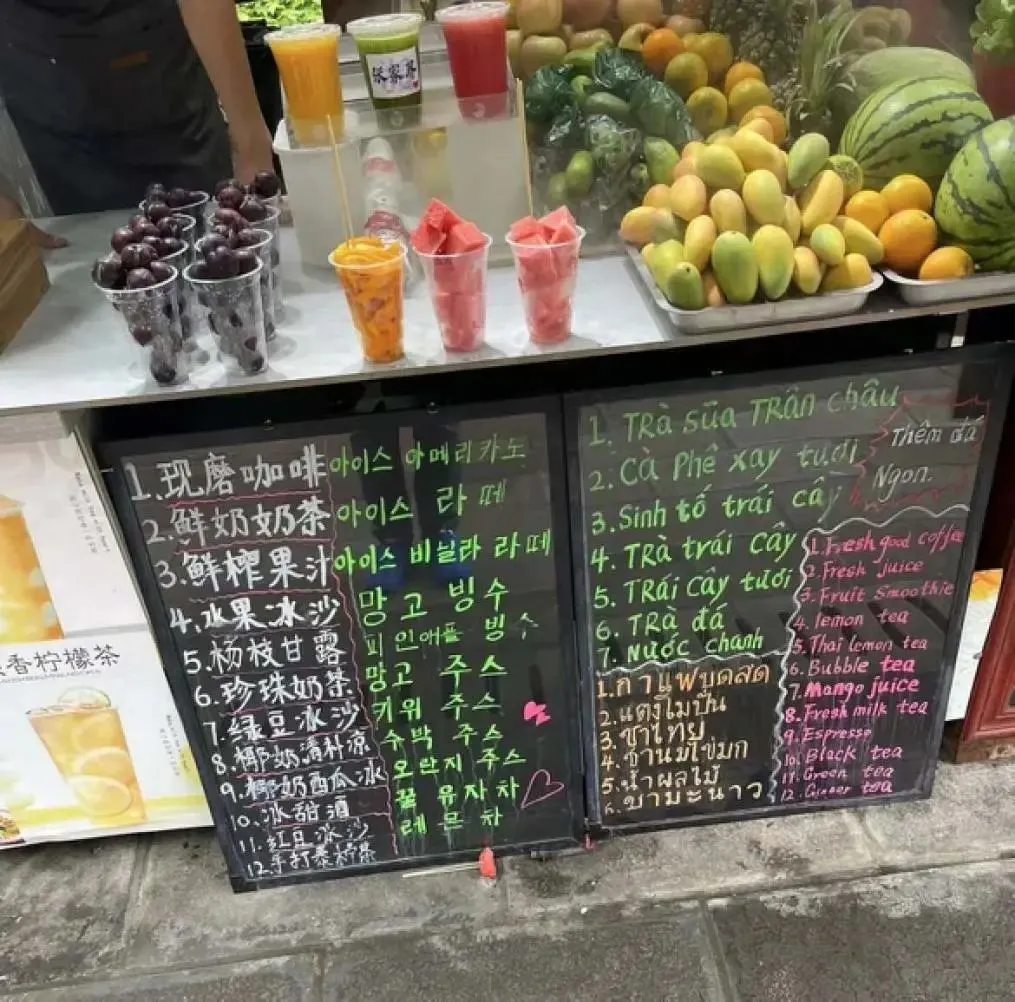 1.现磨咖啡
2.鲜奶奶茶
3.鲜榨果汁
4.水果冰沙
5.杨枝甘露
6.珍珠奶茶
7.绿豆冰沙
8.椰奶清补凉
9.椰奶西瓜冰
10.冰甜酒
11.红豆冰沙
12.手打泰柠茶
아이스 아메리카노
아이스 라떼
아이스 비닐라 라떼
망고 빙수
피인애플 빙수
망고 주스
키위 주스
수박 주스
오란지 주스
꿀 유자차
레몬차
1. TRà sữa TRân châu
2. Cà Phê xay tươi
3. Sinh tố trái cây
4. TRà trái cây
5. TRái cây tươi
6. TRà đá
7. Nước chanh
Thêm đá
Ngon.
1.กาแฟบูดสด
2.แตงโมปั่น
3.ชาไทย
4.ชานมไข่มุก
5.น้ำผลไม้
6.ชามะนาว
1. Fresh good coffee
2. Fresh juice
3. Fruit Smoothie
4. lemon tea
5. Thai lemon tea
6. Bubble tea
7. Mango juice
8. Fresh milk tea
9. Espresso
10. Black tea
11. Green tea
12. Ginger tea
香柠檬茶